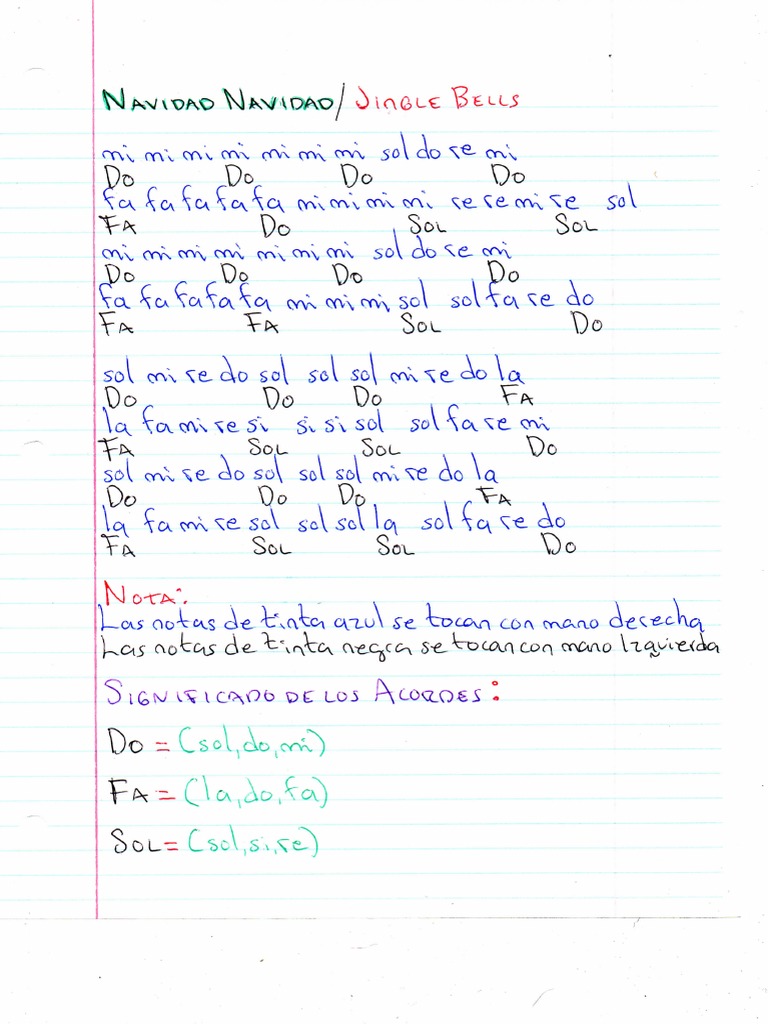 NAVIDAD NAVIDAD/ JINGLE BELLS
mi mi mi mi mi mi mi sol do re mi
DO DO DO DO
fa fa fa fa fa mi mi mi mi re re mi re sol
FA DO SOL SOL
mi mi mi mi mi mi mi sol do re mi
DO DO DO DO
fa fa fa fa fa mi mi mi sol sol fa re do
FA FA SOL DO
sol mi re do sol sol sol mi re do la
DO DO DO FA
la fa mi re si si si sol sol fa re mi
FA SOL SOL DO
sol mi re do sol sol sol mi re do la
DO DO DO FA
la fa mi re sol sol sol la sol fa re do
FA SOL SOL DO
NOTA:
Las notas de tinta azul se tocan con mano derecha
Las notas de tinta negra se tocan con mano Izquierda
SIGNIFICADO DE LOS ACORDES:
DO = (sol, do, mi)
FA = (la, do, fa)
SOL = (sol, si, re)